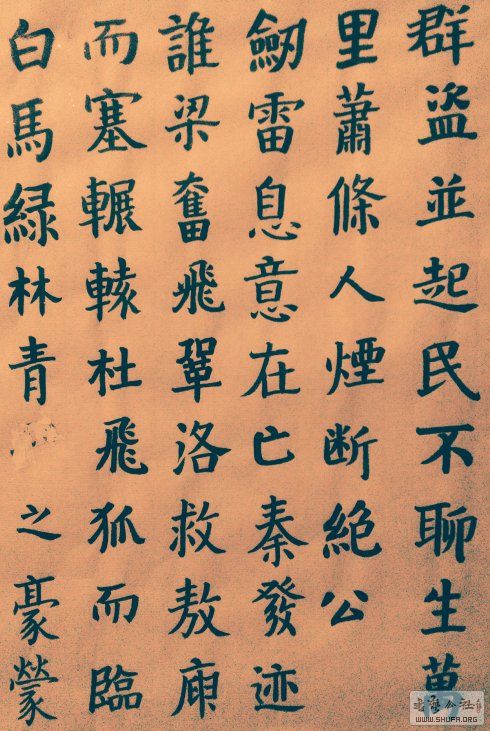 群盜並起民不聊生萬
里蕭條人煙断絕公
劒雷息意在亡秦發迹
誰梁奮飛鞏洛救敖庾
而塞轅杜飛狐而臨
白馬緑林青之豪
WWW.SHUFA.ORG